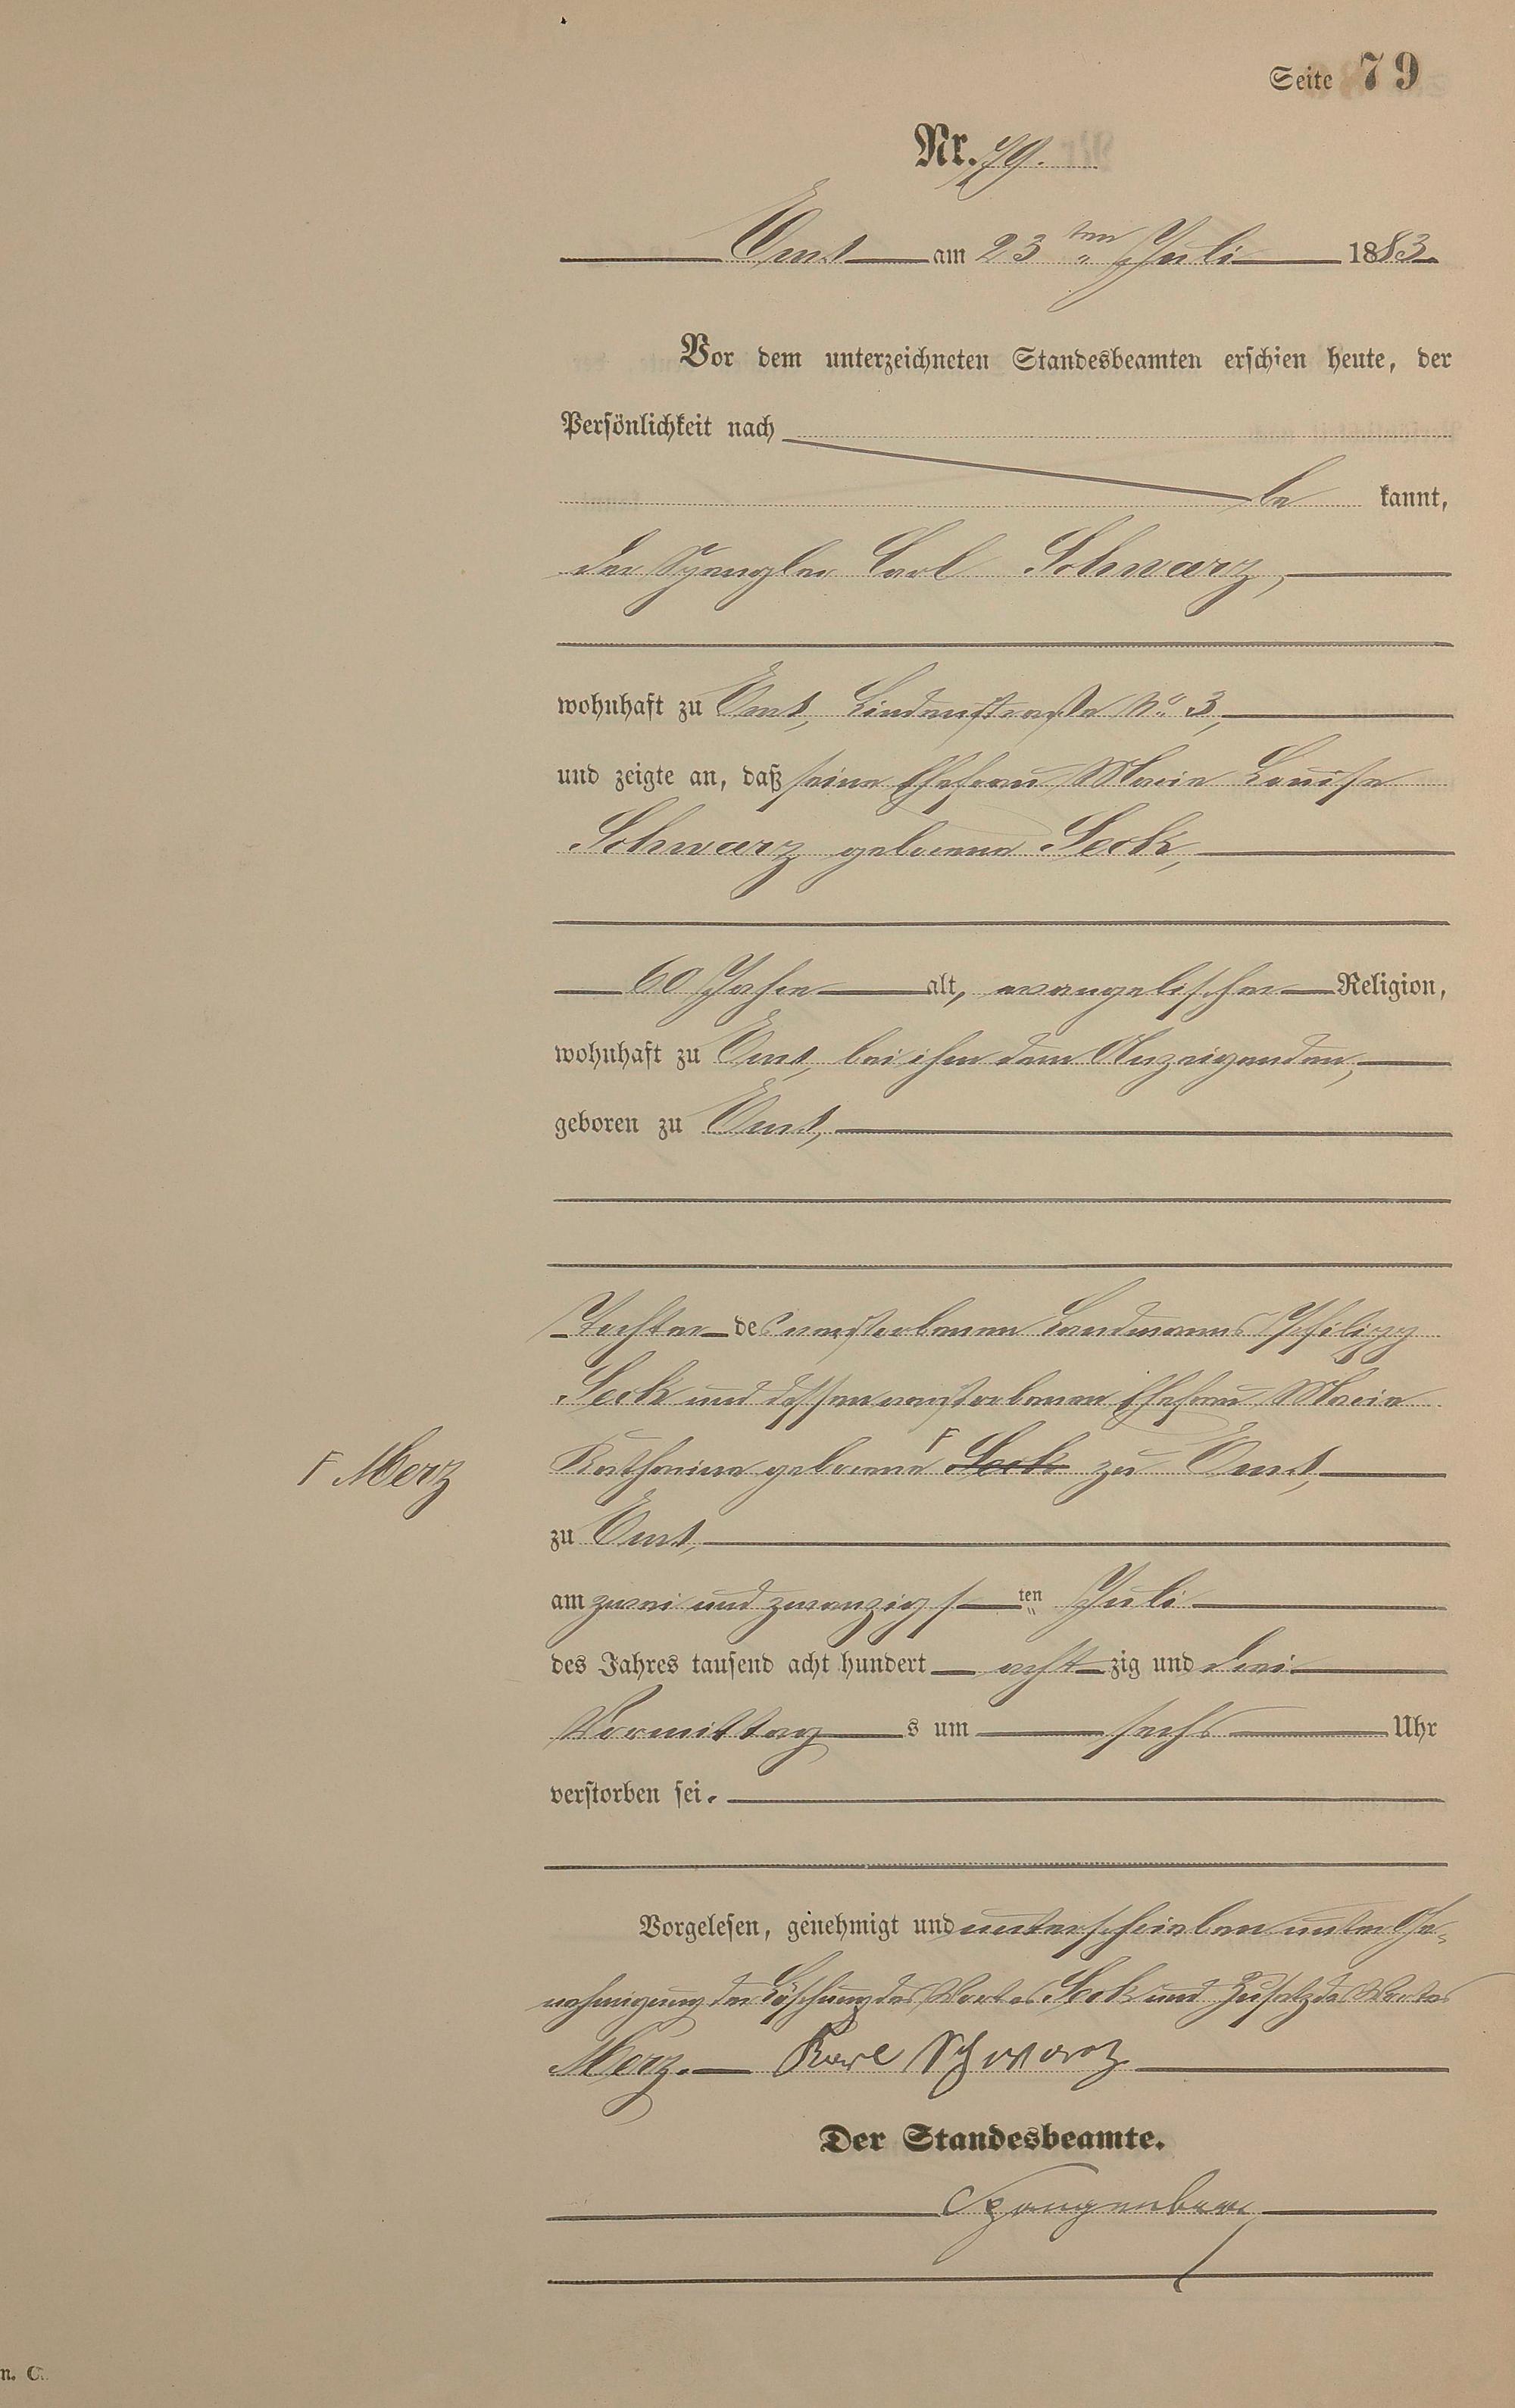 Seite 79
Nr. 79.
Ems am 23 ten Juli 1883.
Vor dem unterzeichneten Standesbeamten erschien heute, der
Persönlichkeit nach
be kannt,
der Spengler Carl Schwarz,
wohnhaft zu Ems, Lindenstraße No. 3,
und zeigte an, daß seine Ehefrau Marie Louise
Schwarz geborene Seck,
60 Jahre alt, evangelischer Religion,
wohnhaft zu Ems, bei ihm dem Anzeigenden,
geboren zu Ems,
Tochter des verstorbenen Landmanns Philipp
Seck und dessen verstorbenen Ehefrau Marie
Katharine geborene Γ Seck zu Ems,
Γ Merz
zu Ems,
am zwei und zwanzigs ten Juli
des Jahres tausend acht hundert acht zig und drei
Vormittag s um sechs Uhr
verstorben sei.
Vorgelesen, genehmigt und unterschrieben unter Ge-
nehmigung der Löschung des Wortes Seck und Zusatz des Wortes
Merz. Karl Schwarz
Der Standesbeamte.
Spangenberg
n. C.